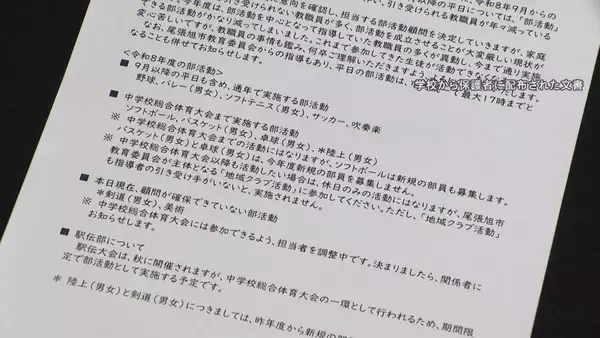 令和8年9月からの
意向を確認し、担当する部活動顧問を決定していきますが、家庭
引き受けられない教職員が多く、部活動を成立させることが大変厳しい現状が
年度は、部活動を中心となって指導していた教職員の多くが異動し、今まで通り実施
できる部活動がかなり減ってしまいました。これまで参加してきた生徒が活動できなくなり
変心苦しいですが、教職員の事情も鑑み、何卒ご理解いただきますよう
なお、尾張旭市教育委員会からの指導もあり、平日の部活動は、
最大17時までと
なることも併せてお知らせします。
学校から保護者に配布された文書
<令和8年度の部活動>
■ 9月以降の平日も含め、通年で実施する部活動
野球、バレー(男女)、ソフトテニス(男女)、サッカー、吹奏楽
■ 中学校総合体育大会まで実施する部活動
ソフトボール、バスケット(男女)、卓球(男女)、*陸上(男女)
※ 中学校総合体育大会までの活動にはなりますが、ソフトボールは新規の部員も募集します。
バスケット(男女)と卓球(男女)は、今年度新規の部員を募集しません。
※ 中学校総合体育大会以降も活動したい場合は、休日のみの活動にはなりますが、尾張旭市
教育委員会が主体となる「地域クラブ活動」に参加してください。ただし、「地域クラブ活動」
も指導者の引き受け手がいないと、実施されません。
■ 本日現在、顧問が確保できていない部活動
*剣道(男女)、美術
※ 中学校総合体育大会には参加できるよう、担当者を調整中です。決まりましたら、関係者に
お知らせします。
■ 駅伝部について
駅伝大会は、秋に開催されますが、中学校総合体育大会の一環として行われるため、期間限
定で部活動として実施する予定です。
* 陸上(男女)と剣道(男女)につきましては、昨年度から新規の部